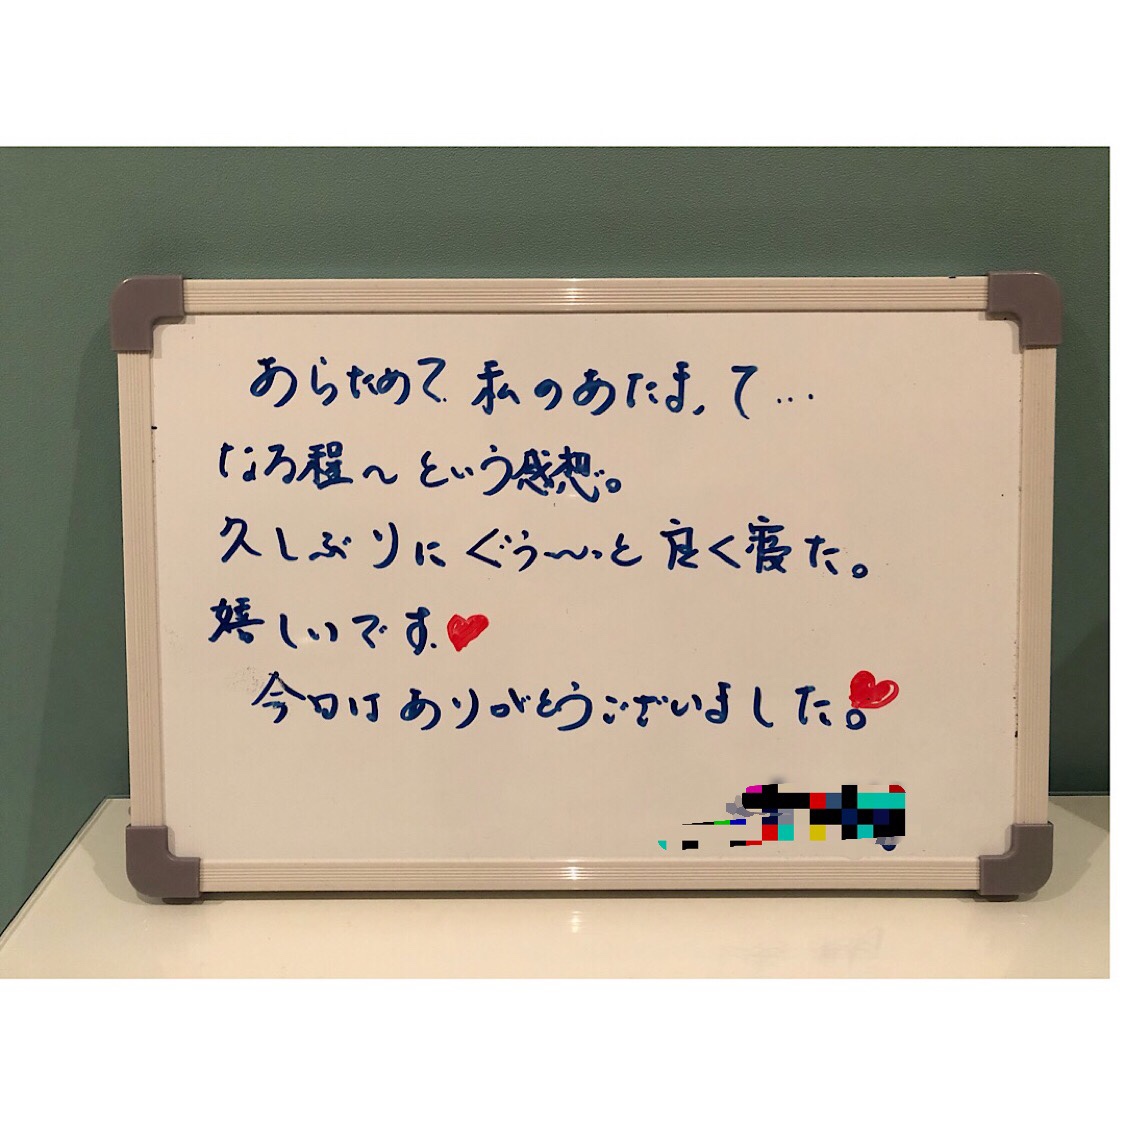 あらためて 私のあたまって…
なる程〜という感想。
久しぶりにぐぅ〜っと良く寝た。
嬉しいです♥
今日はありがとうございました。♥